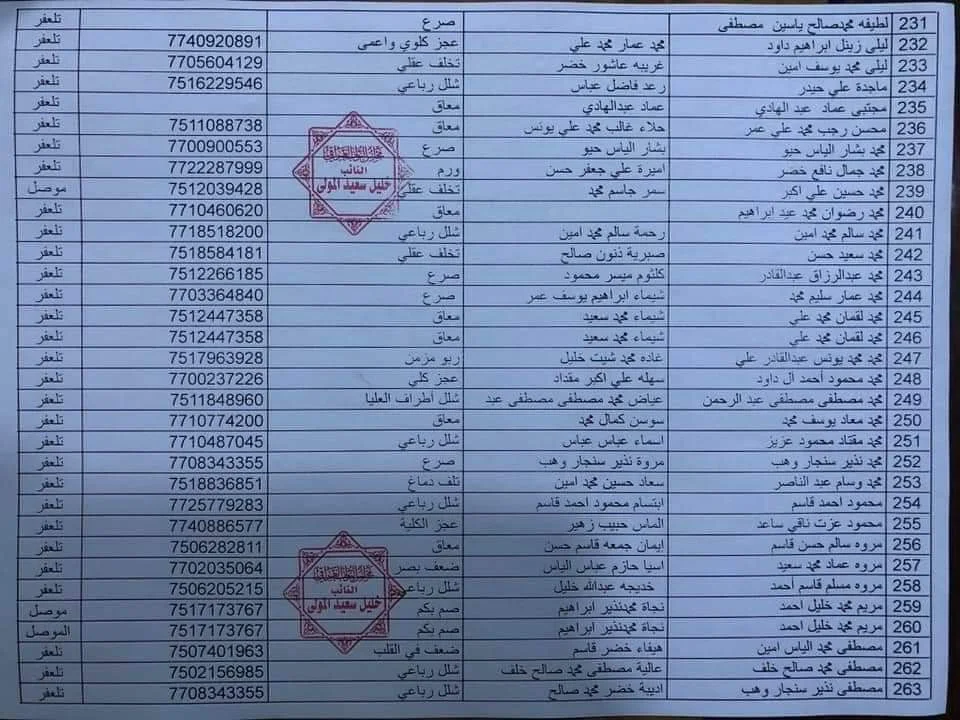 231 لطيفه محمدصالح ياسين مصطفى صرع تلعفر
232 ليلى زينل ابراهيم داود محمد عمار محمد علي عجز كلوي واعمى 7740920891 تلعفر
233 ليلى محمد يوسف امين غريبه عاشور خضر تخلف عقلي 7705604129 تلعفر
234 ماجدة علي حيدر رعد فاضل عباس شلل رباعي 7516229546 تلعفر
235 مجتبى عماد عبد الهادي عماد عبدالهادي معاق تلعفر
236 محسن رجب محمد علي عمر حلاء غالب محمد علي يونس معاق 7511088738 تلعفر
237 محمد بشار الياس حيو بشار الياس حيو صرع 7700900553 تلعفر
238 محمد جمال نافع خضر اميرة علي جعفر حسن ورم 7722287999 تلعفر
239 محمد حسين علي اكبر سمر جاسم محمد تخلف عقلي 7512039428 موصل
240 محمد رضوان محمد عيد ابراهيم معاق 7710460620 تلعفر
241 محمد سالم محمد امين رحمة سالم محمد امين شلل رباعي 7718518200 تلعفر
242 محمد سعيد حسن صبرية ذنون صالح تخلف عقلي 7518584181 تلعفر
243 محمد عبدالرزاق عبدالقادر كلثوم ميسر محمود صرع 7512266185 تلعفر
244 محمد عمار سليم محمد شيماء ابراهيم يوسف عمر صرع 7703364840 تلعفر
245 محمد لقمان محمد علي شيماء محمد سعيد معاق 7512447358 تلعفر
246 محمد لقمان محمد علي شيماء محمد سعيد معاق 7512447358 تلعفر
247 محمد محمد يونس عبدالقادر علي غاده محمد شيت خليل ربو مزمن 7517963928 تلعفر
248 محمد محمود أحمد ال داود سهله علي اكبر مقداد عجز كلي 7700237226 تلعفر
249 محمد مصطفى مصطفى عبد الرحمن عياض محمد مصطفى مصطفى عبد شلل أطراف العليا 7511848960 تلعفر
250 محمد معاد يوسف محمد سوسن كمال محمد معاق 7710774200 تلعفر
251 محمد مقتاد محمود عزيز اسماء عباس عباس شلل رباعي 7710487045 تلعفر
252 محمد نذير سنجار وهب مروة نذير سنجار وهب صرع 7708343355 تلعفر
253 محمد وسام عبد الناصر سعاد حسين محمد امين تلف دماغ 7518836851 تلعفر
254 محمود احمد قاسم ابتسام محمود احمد قاسم شلل رباعي 7725779283 تلعفر
255 محمود عزت ناقي ساعد الماس حبيب زهير عجز الكلية 7740886577 تلعفر
256 مروه سالم حسن قاسم إيمان جمعه قاسم حسن معاق 7506282811 تلعفر
257 مروه عماد محمد سعيد اسيا حازم عباس الياس ضعف بصر 7702035064 تلعفر
258 مروه مسلم قاسم أحمد خديجه عبدالله خليل شلل رباعي 7506205215 تلعفر
259 مريم محمد خليل احمد نجاة محمدنذير ابراهيم صم بكم 7517173767 موصل
260 مريم محمد خليل احمد نجاة محمدنذير ابراهيم صم بكم 7517173767 الموصل
261 مصطفى محمد الياس امين هيفاء خضر قاسم ضعف في القلب 7507401963 تلعفر
262 مصطفى محمد صالح خلف عالية مصطفى محمد صالح خلف شلل رباعي 7502156985 تلعفر
263 مصطفى نذير سنجار وهب اديبة خضر محمد صالح شلل رباعي 7708343355 تلعفر
مجلس النواب العراقي
النائب
خليل سعيد المولى
مجلس النواب العراقي
النائب
خليل سعيد المولى